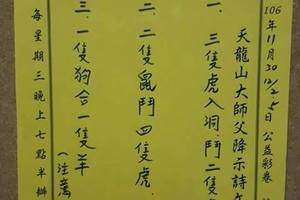 106年11月30日12/2、5日公益彩卷
天龍山大師父降示詩文
一.三隻虎入洞.鬥二隻
二.二隻鼠鬥四隻虎.
三.一隻狗合一隻羊
(注意
每星期三晚上七點半辦